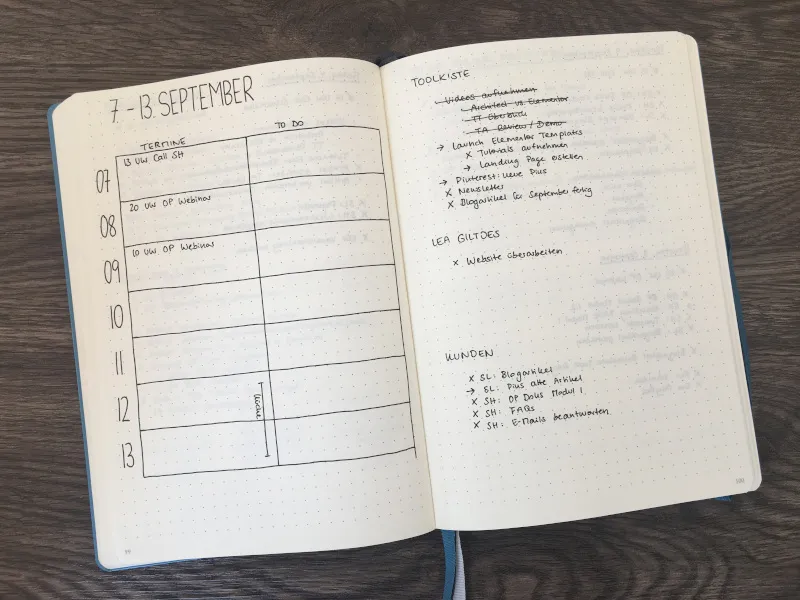 7 - 13. SEPTEMBER
TERMINE
TO DO
07
13 Uhr Call SH
08
20 Uhr OP Webinar
09
10 Uhr OP Webinar
10
11
12
13
TOOLKISTE
Videos aufnehmen
Architect vs. Elementor
TT Überblick
TA Review / Demo
→ Launch Elementor Templates
x Tutorials aufnehmen
→ Landing Page erstellen
→ Pinterest: neue Pins
x Newsletter
x Blogartikel für September fertig
LEA GILTDES
x Website überarbeiten
KUNDEN
x SL: Blogartikel
→ SL: Pins alte Artikel
x SH: OP Doks Modul 1
x SH: FAQs
x SH: E-Mails beantworten